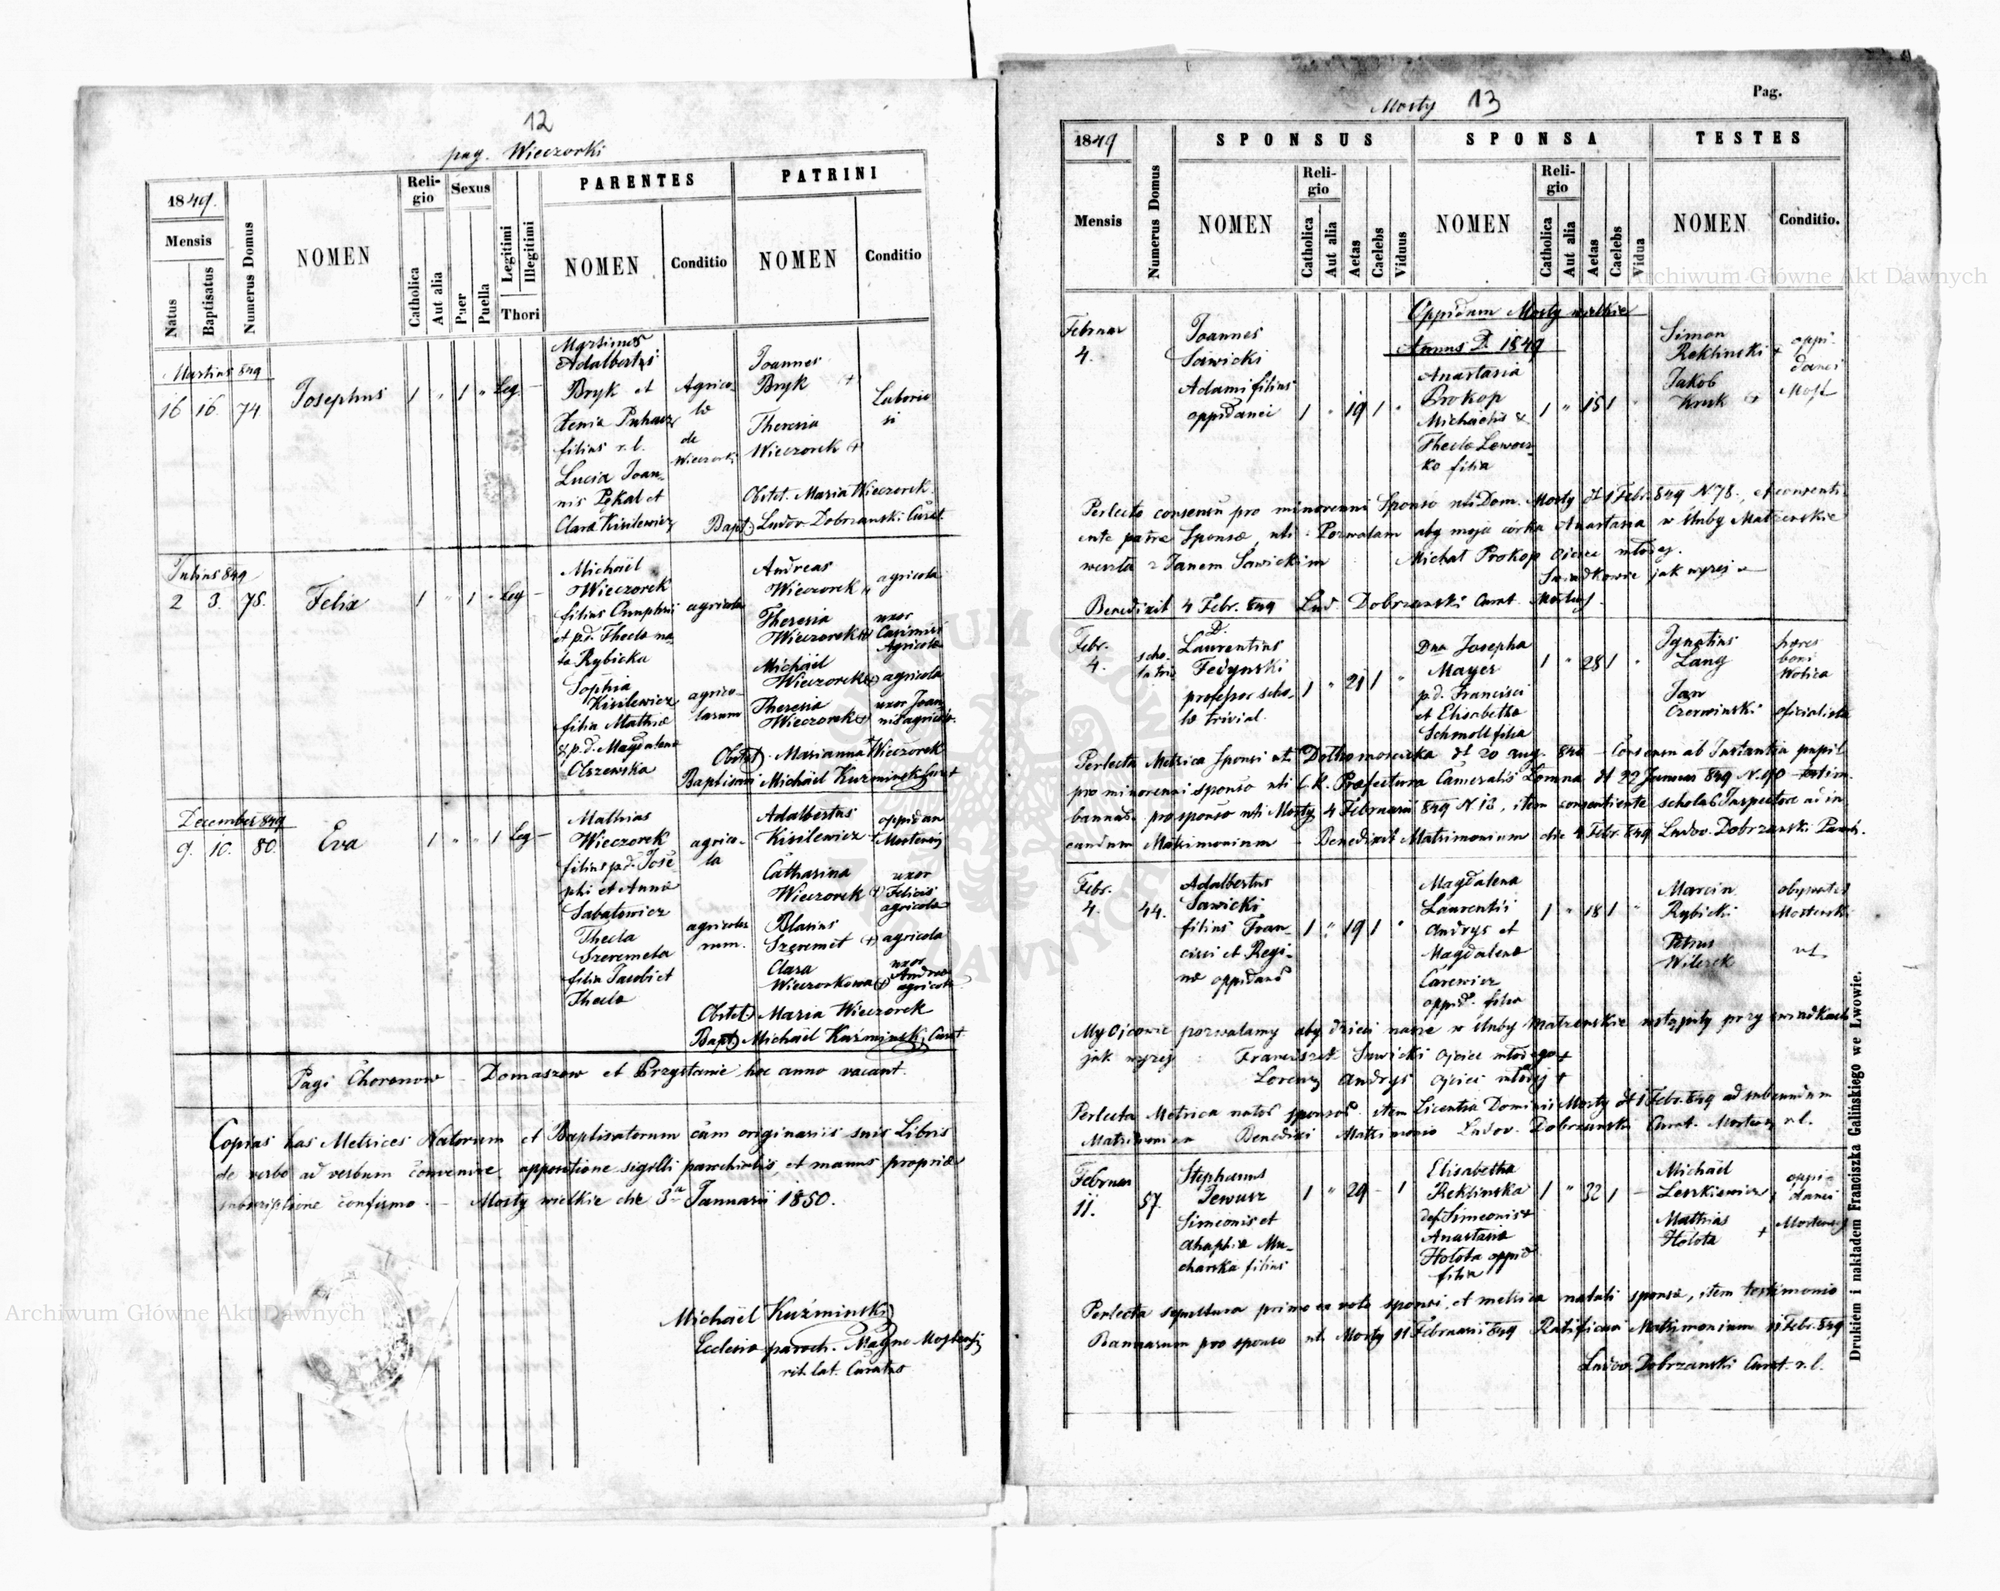 12
pag. Wieczorki
1849.
Mensis
Natus
Baptisatus
Numerus Domus
NOMEN
Religio
Catholica
Aut alia
Sexus
Puer
Puella
Legitimi
Illegitimi
Thori
PARENTES
NOMEN
Conditio
PATRINI
NOMEN
Conditio
Martius 849
16 16. 74 Josephus 1 " 1 " Leg. –
Adalbertus
Bryk et
filius r. l.
Lucia Joan-
nis Pękal et
Clara Kisilewicz
Agrico-
la
de
Wieczorki
Joannes
Bryk (+)
Theresia
Wieczorek (+)
Laborio
si
Obstet. Maria Wieczorek
Bapt.) Ludov. Dobrzanski Curat.
Julius 849
2 3. 78. Felix 1 " 1 " Leg –
Michaël
Wieczorek
filius Onuphrii
et p.d. Thecla na-
ta Rybicka
Sophia
Kisilewicz
filia Mathiæ
& p.d. Magdalena
Olszewska
agricola
agrico-
larum
Andreas
Wieczorek
Theresia
Wieczorek (+)
Michaël
Wieczorek (+)
Theresia
Wieczorek (+)
agricola
uxor
Casimiri
Agricola
agricola
uxor Joan-
nis agricola
Obstet). Marianna Wieczorek
Baptisavi Michaël Kuźminski Curat
December 849
9. 10. 80. Eva 1 " " 1 Leg –
Mathias
Wieczorek
filius p.d. Jose
phi et Anna
Sabatowicz
Thecla
Szeremeta
filia Jacobi et
Thecla
agrico-
la
agricola
rum.
Adalbertus
Kisilewicz
Catharina
Wieczorek (+)
Blasius
Szeremet (+)
Clara
Wieczorkowa (+)
oppidan
Mostensis
uxor
Felicis
agricola
agricola
uxor
Andreæ
agricola
Obstet.) Maria Wieczorek
Bapt) Michaël Kuźminski, Curat.
Pagi Choronow – Domaszow et Przystanie hoc anno vacant.
Copias has Metrices Natorum et Baptisatorum cum originariis suis Libris
de verbo ad verbum convenire, appositione sigilli parochialis, et manus propriæ
subscriptione confirmo. – Mosty wielkie die 3a Januarii 1850.
Michaël Kuźminski
Ecclesiæ paroch. Magno Mostensis
rit. lat. Curatus
Mosty 13
Pag.
1849
Mensis
Numerus Domus
SPONSUS
NOMEN
Religio
Catholica
Aut alia
Aetas
Caelebs
Viduus
SPONSA
NOMEN
Religio
Catholica
Aut alia
Aetas
Caelebs
Vidua
TESTES
NOMEN
Conditio.
Oppidum Mosty wielkie
Annus D. 1849
Februar
4.
Joannes
Sawicki
Adami filius
oppidanei
1 " 19 1 "
Anastasia
Prokop
Michaelis &
Thecla Lewoc-
ko filia
1 " 15 1 "
Simon
Reklinski +
Jakob
Kruk +
oppi-
danei
Most
Perlecto consensu pro minorenni Sponso nti Dom. Mosty dt 1 Febr. 849 N. 78., et consenti-
ente patre Sponsæ, uti: Pozwalam aby moja córka Anastasia w śluby Małżenskie
weszła z Janem Sawickim Michał Prokop Ojciec młodej.
Swiadkowie jak wyzej
Benedixit 4 Febr. 849 Lud. Dobrzanski Curat. Mostens.
Febr.
4.
scho-
la triv.
D.
Laurentius
Fedynski
professor scho-
læ trivial.
1 " 21 1 "
Dna Josepha
Mayer
p.d. Francisci
et Elisabetha
Schmoll filia
1 " 28 1 "
Ignatius
Lang
Jan
Czerwinski
hæres
boni
Wolica
oficialista
Perlecta Metrica Sponsi nti Dołhomościska dt 20 aug. 848 – Consensu ab Instantia pupil.
pro minorenni sponso nti C. K. Præfectura Cameralis Lomna dt 22 Januar 849 N. 90 –
bannas. pro sponso nti Mosty 4 Februarii 849 N. 13, item consentiente schola Inspectore ad in-
eundum Matrimonium – Benedixit Matrimonium die 4 Febr. 849 Ludov. Dobrzanski Paroch.
Febr.
4.
44.
Adalbertus
Sawicki
filius Fran-
cisci et Regi-
næ oppidano
1 " 19 1 "
Magdalena
Laurentii
Andrys et
Magdalena
Carewicz
oppid. filia
1 " 18 1 "
Marcin
Rybicki
Petrus
Wilczek
obywatel
Mostenski
ut
My Ojcowie pozwalamy aby dzieci nasze w śluby Małżenskie wstąpiły przy swiadkach
jak wyzej: Franciszek Sawicki Ojciec młodego +
Lorenz Andrys Ojciec młodej +
Perlecta Metrica natos sponsos. item Licentia Dominii Mosty dt 1 Febr. 849 ad subeundum
Matrimonium Benedixi Matrimonio Ludov. Dobrzanski Curat. Mostens r.l.
Februar
11.
57.
Stephanus
Jewusz
Simeonis et
Ahaphia Mu-
charska filius
1 " 29 – 1
Elisabetha
Reklinska
def. Simeonis &
Anastasia
Holota oppid
filia
1 " 32 1 –
Michaël
Leszkiewicz
Mathias
Holota +
oppi-
danei
Mostenses
Perlecta sepultura primo ex voto sponsi, et metrica natali sponsæ, item testimonio
Bannarum pro sponso nti Mosty 11 Februarii 849 Ratificavi Matrimonium 11 Febr. 849
Ludov. Dobrzanski Curat. r. l.
Drukiem i nakładem Franciszka Galińskiego we Lwowie.
Archiwum Główne Akt Dawnych
Archiwum Główne Akt Dawnych